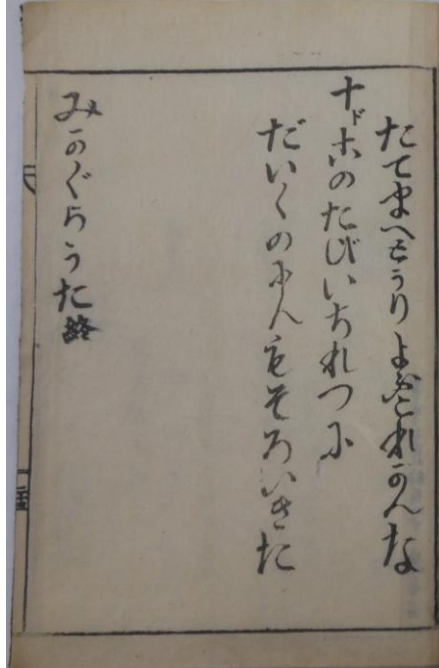 たてまへとうりよふこれかんな
十ドこのたびいちれつに
だいくのにんもそろいきた
みかぐらうた終